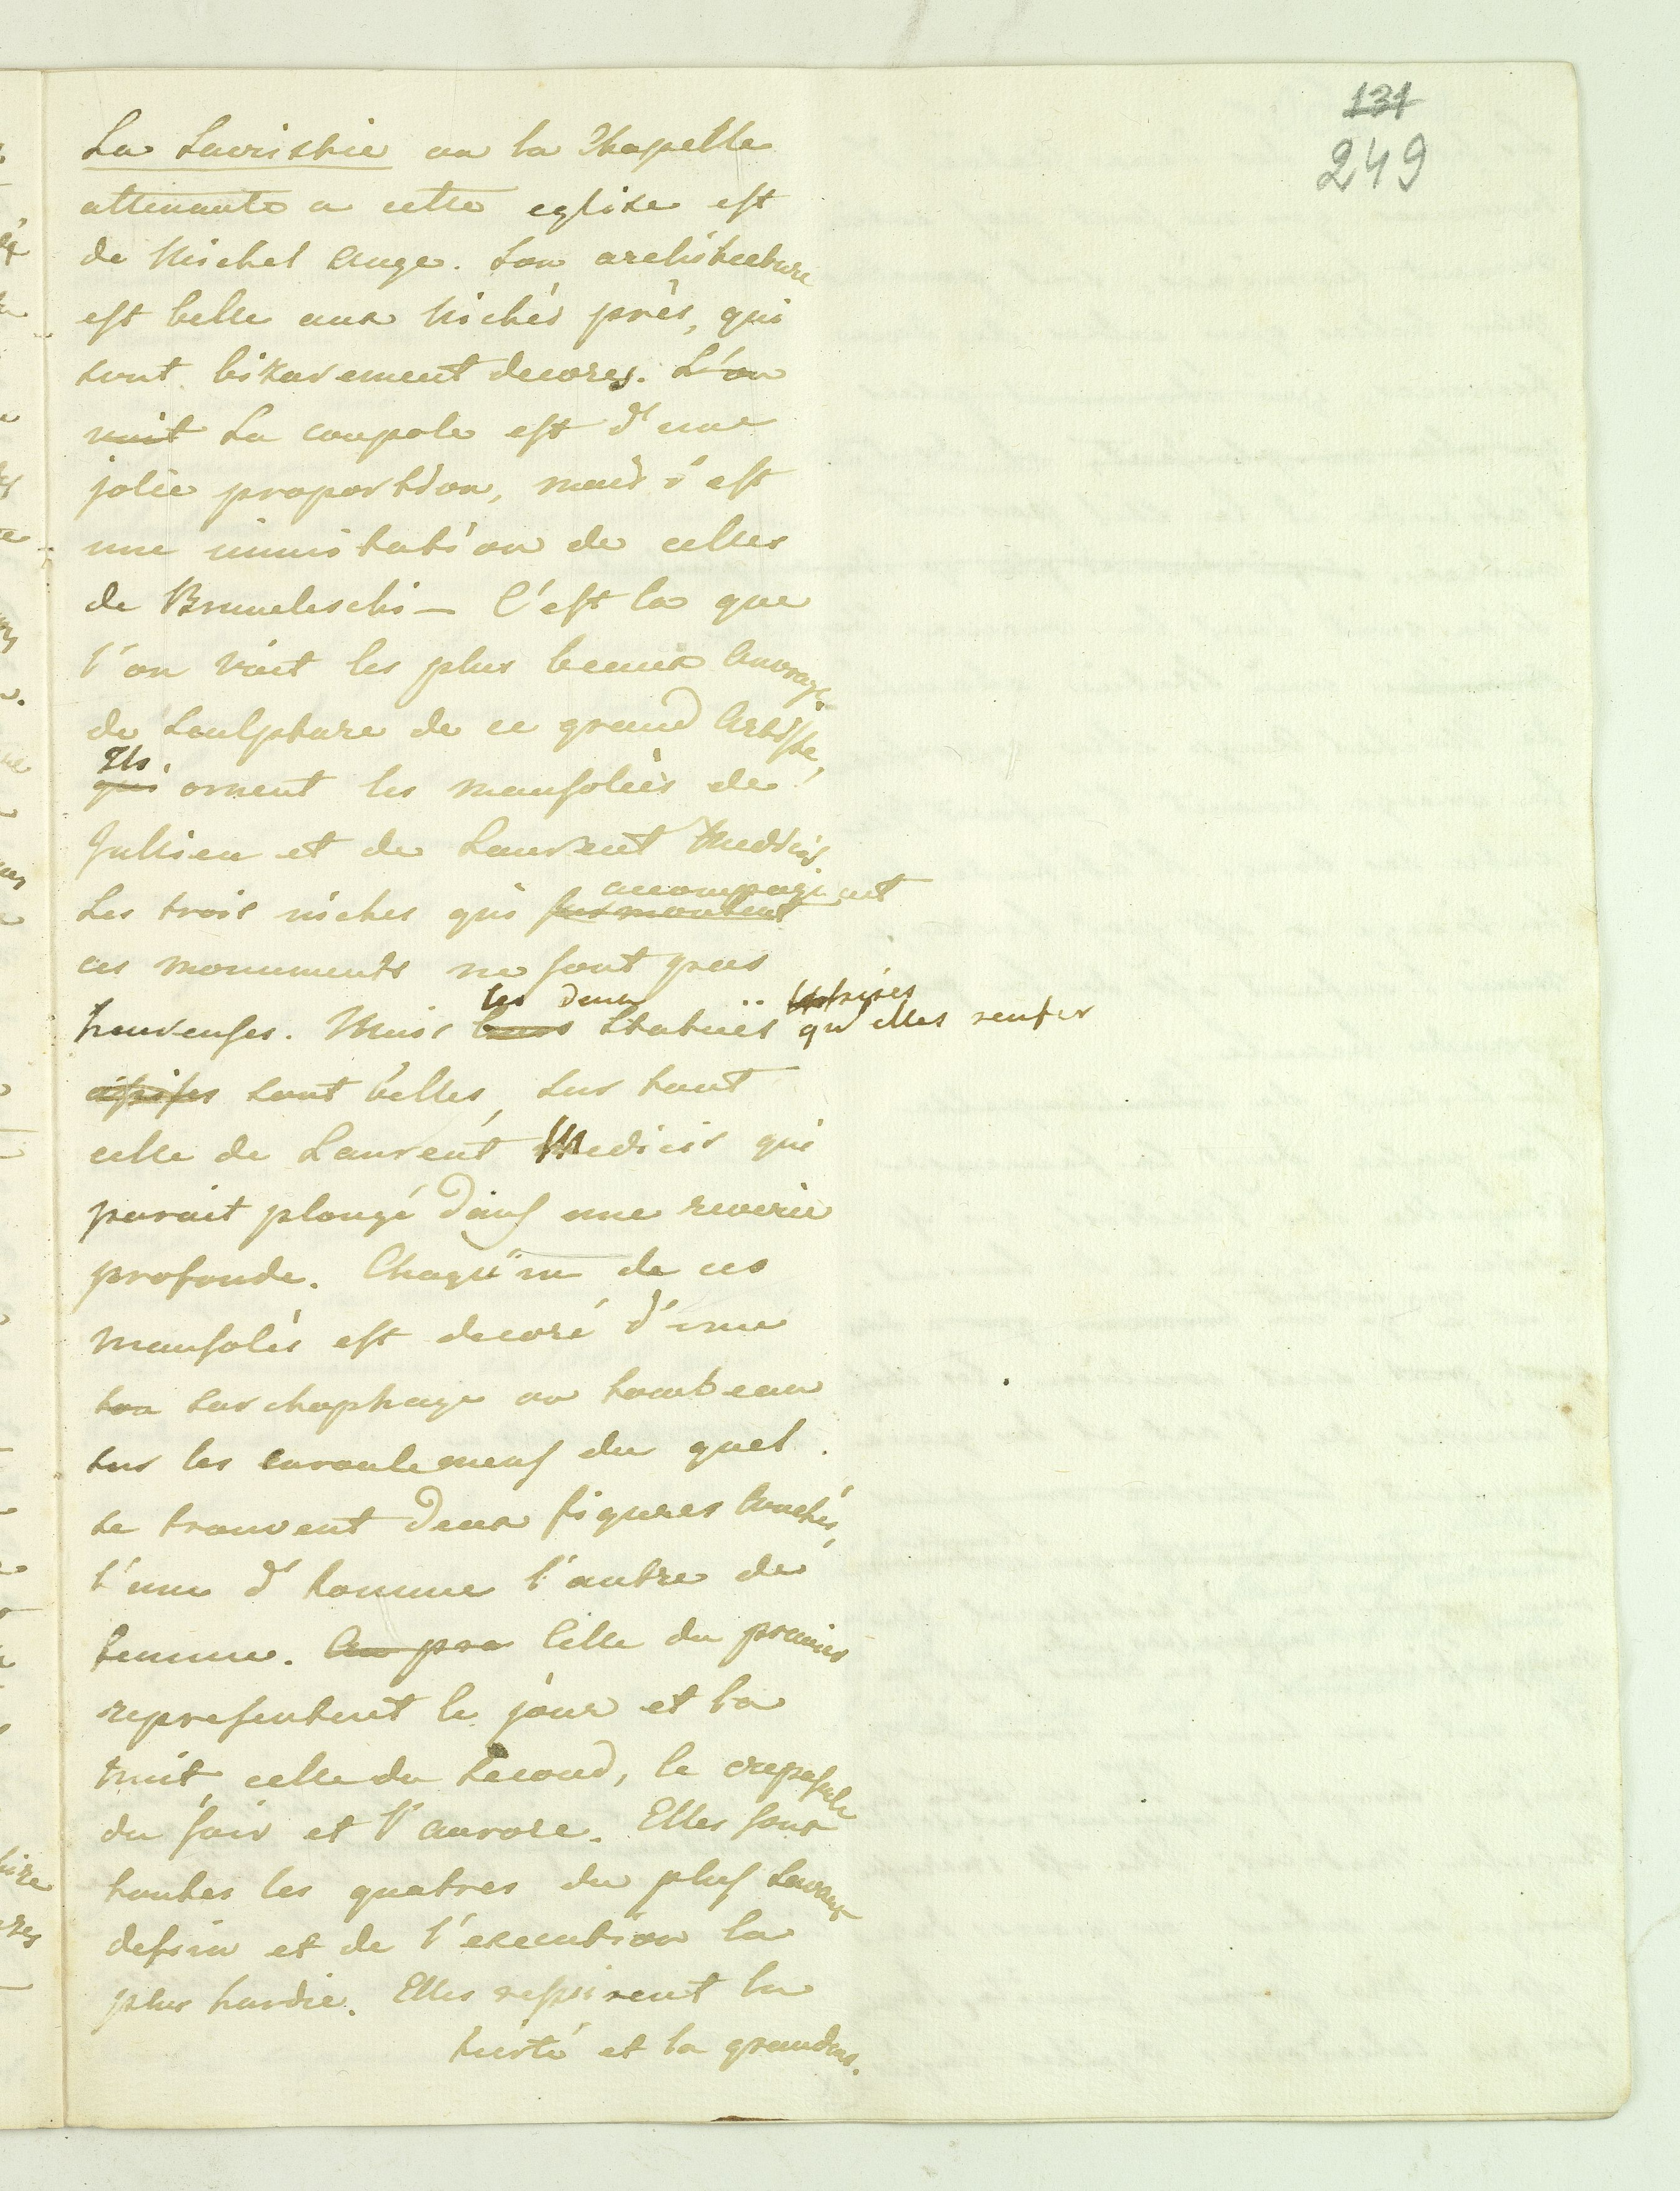 131
249
La Sacristie ou la Chapelle
attenante a cette eglise est
de Michel Ange. Son architecture
est belle aux Nichés près, qui
sont bizarement decorés. L'on
voit La coupole est d'une
jolie proportion, mais c'est
une immitation de celles
de Bruneleschi – C'est la que
l'on voit les plus beaux Ouvrages
de Sculpture de ce grand Artiste,
Ils
qui ornent les mausolées de
Jullien et de Laurent Medicis
accompagnent
Les trois niches qui surmontent
ces monuments ne sont pas
les deux
heureuses. Mais leurs Statues qu'elles renfer
assises sont belles, sur tout
celle de Laurent Medicis qui
parait plongé dans une reverie
profonde. Chaqu'un de ces
mausolés est decoré d'une
ton sarchophage ou tombeau
sur les enroulemens du quel
se trouvent deux figures couchés,
l'une d'homme l'autre de
femme. Au pre Celle du premier
representent le jour et la
nuit, celle du Second, le crepuscule
du soir et l'aurore. Elles sont
toutes les quatres du plus savant
dessin et de l'execution la
plus hardie. Elles respirent la
fierté et la grandeur.